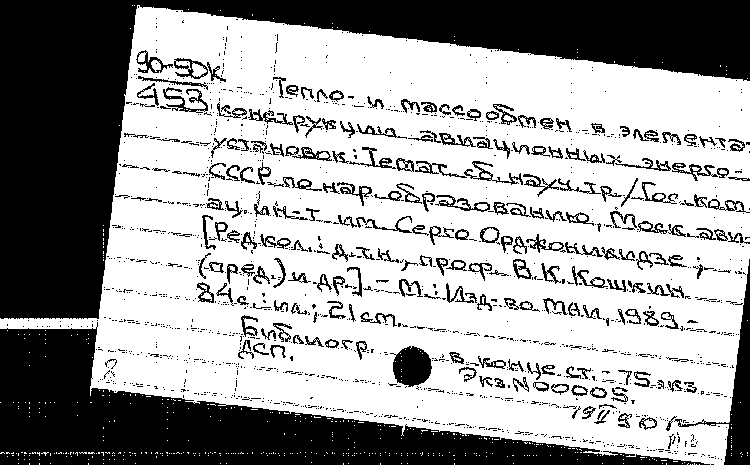 90-5ДК
453
Тепло- и массообмен в элемента
конструкциях авиационных энерго-
установок: Темат. сб. науч. тр. / Гос. ком.
СССР по нар. образованию, Моск. ави-
ац. ин-т им. Серго Орджоникидзе;
[Редкол.: д.т.н., проф. В.К. Кошкин
(пред.) и др.]. - М.: Изд-во МАИ, 1989. -
84с.: ил.; 21 cm.
Библиогр. в конце ст. - 75 экз.
ДСП. Экз. N 00005.
19 II 90
2